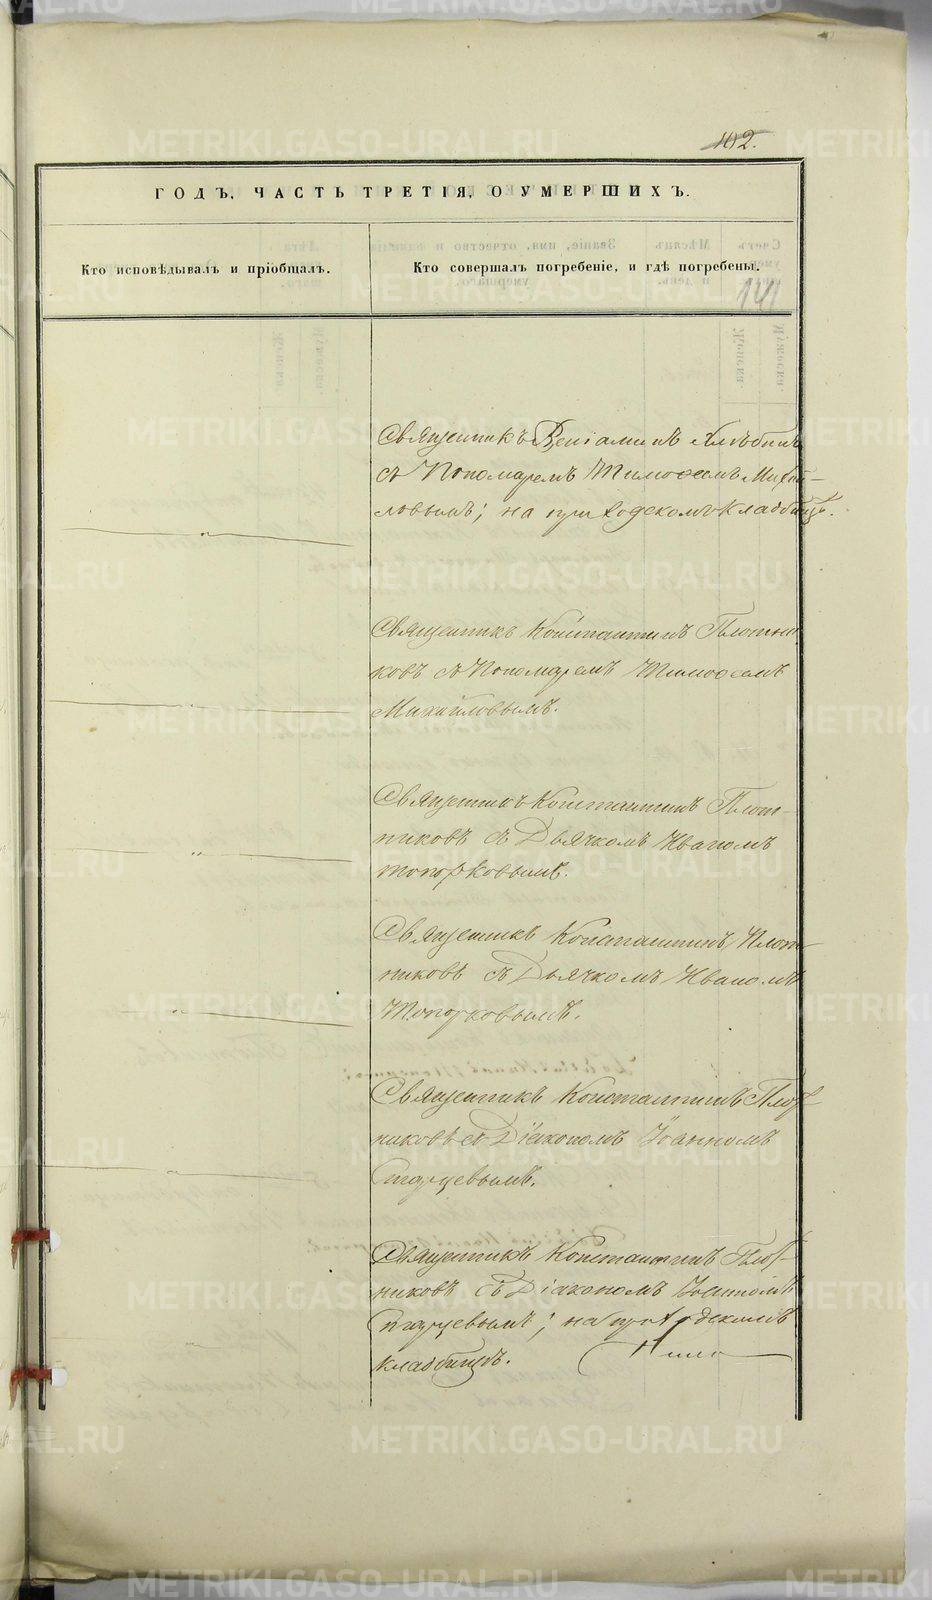 412.
ГОДЪ, ЧАСТЬ ТРЕТІЯ, О УМЕРШИХЪ.
Кто исповѣдывалъ и пріобщалъ.
Кто совершалъ погребеніе, и гдѣ погребены.
141
Священникъ Веніаминъ
съ Пономаремъ Тимоѳеемъ Михай-
ловымъ; на приходскомъ кладбищѣ.
Священникъ Константинъ Плотни
ковъ съ Пономаремъ Тимоѳеемъ
Михайловымъ.
Священникъ Константинъ Плот-
никовъ съ Дьячкомъ Иваномъ
топорковымъ.
Священникъ Константинъ Плот-
никовъ съ Дьячкомъ Иваномъ
Топорковымъ.
Священникъ Константинъ Плот-
никовъ съ Діакономъ Іоанномъ
Старцевымъ.
Священникъ Константинъ Плот-
никовъ съ Діакономъ Іоанномъ
Старцевымъ; на приходскомъ
кладбищѣ.
METRIKI.GASO-URAL.RU